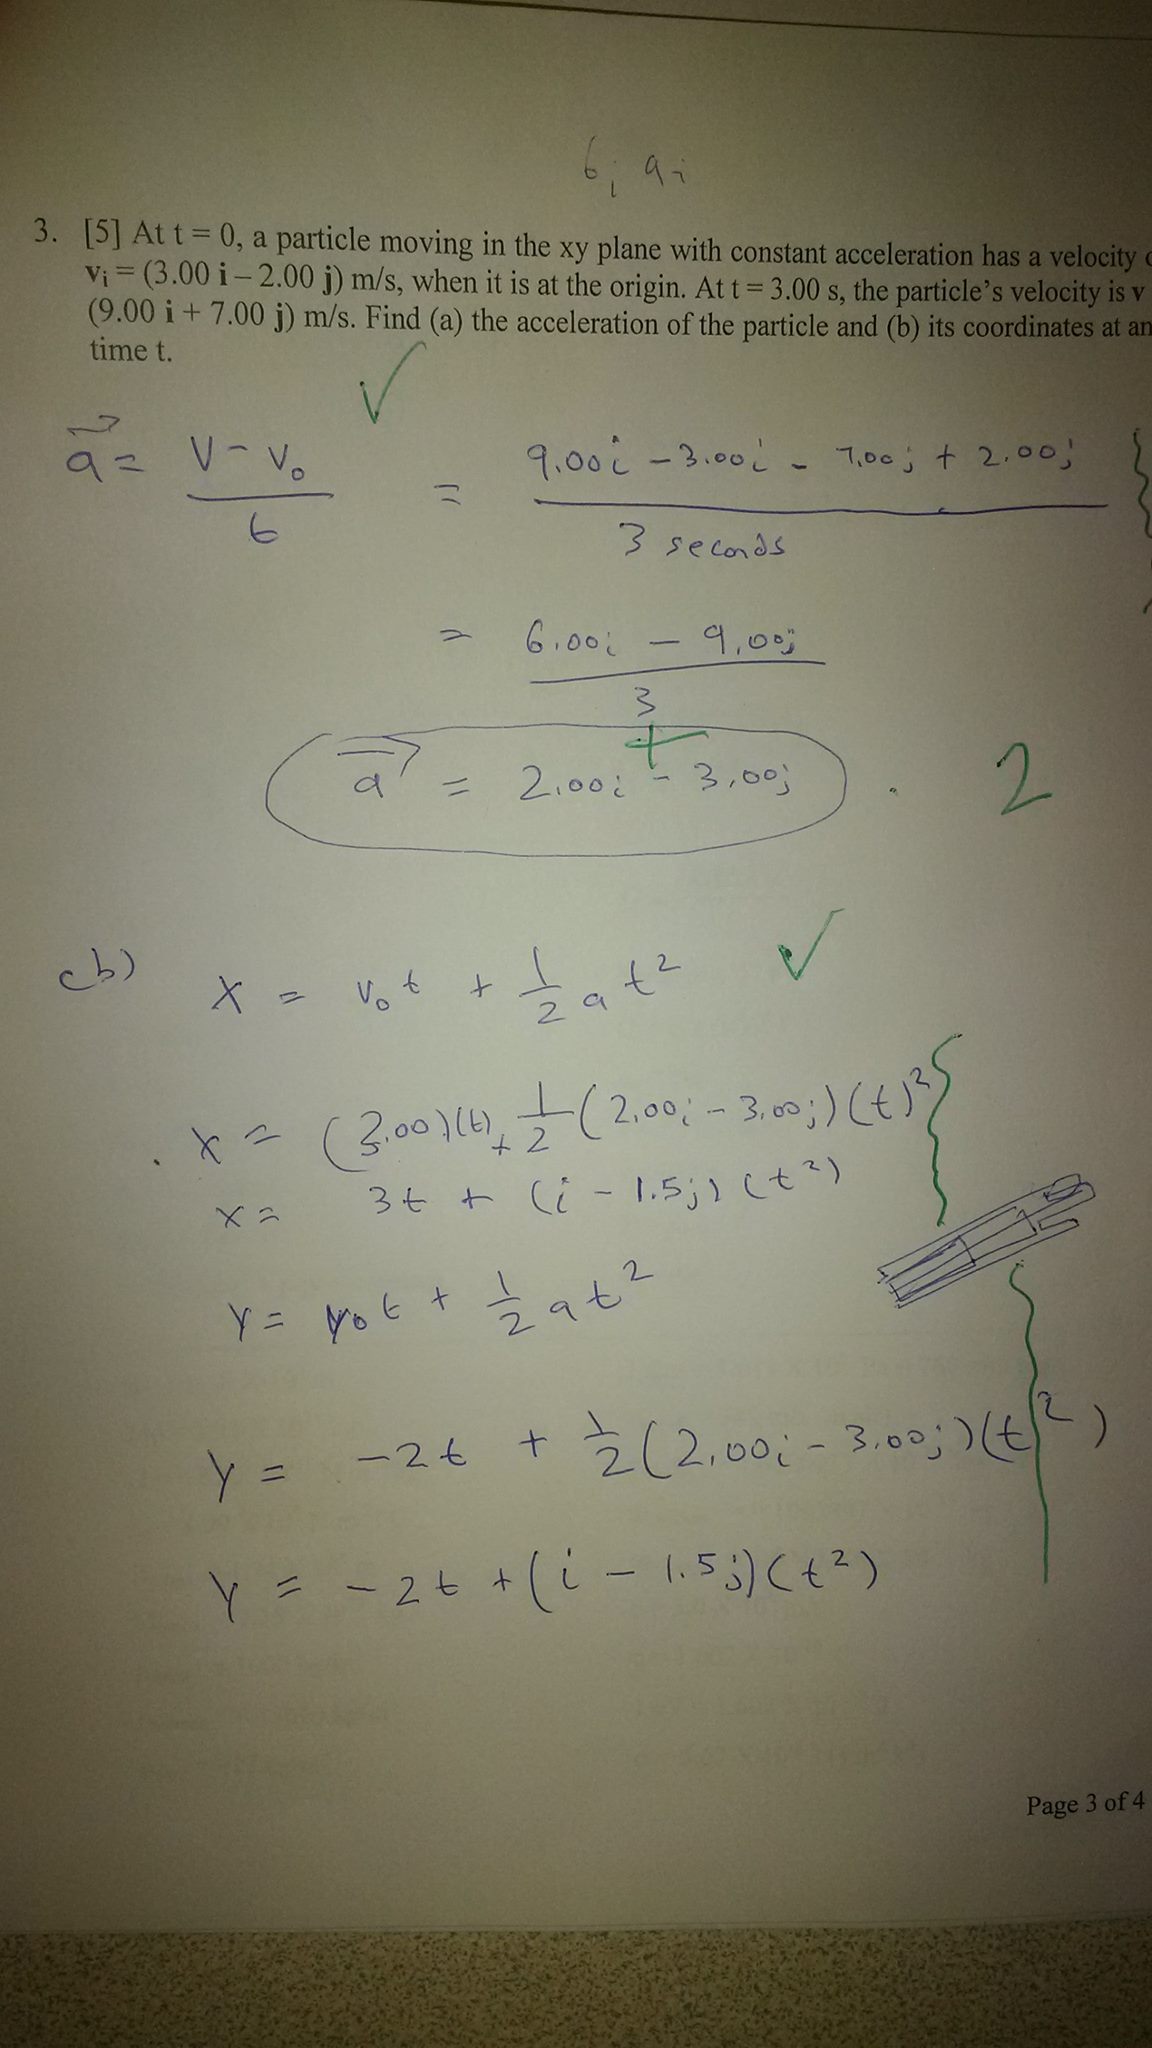 6i 9j
3. [5] At t = 0, a particle moving in the xy plane with constant acceleration has a velocity
vᵢ = (3.00 i – 2.00 j) m/s, when it is at the origin. At t = 3.00 s, the particle's velocity is v
(9.00 i + 7.00 j) m/s. Find (a) the acceleration of the particle and (b) its coordinates at
time t.
✓
a⃗ = (V - V₀)/t = (9.00i - 3.00i - 7.00j + 2.00j)/(3 seconds)
= (6.00i - 9.00j)/3
+
a⃗ = 2.00i - 3.00j . 2
(b) X = V₀t + 1/2 at² ✓
x = (3.00)(t) + 1/2 (2.00i - 3.00j)(t)²
x = 3t + (i - 1.5j)(t²)
y = y₀t + 1/2 at²
y = -2t + 1/2 (2.00i - 3.00j)(t²)
y = -2t + (i - 1.5j)(t²)
Page 3 of 4